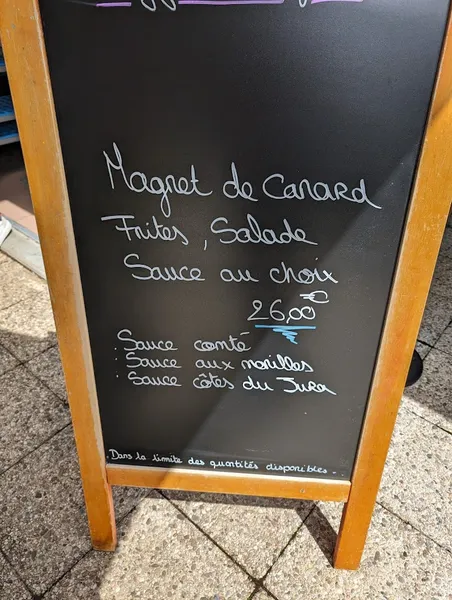 Magret de Canard
Frites, Salade
Sauce au choix
26,00€
Sauce comté
: Sauce aux morilles
: Sauce côtes du Jura
Dans la limite des quantités disponibles.